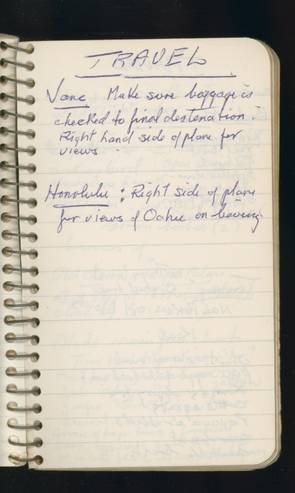 TRAVEL
Vanc Make sure baggage is
checked to final destenation.
Right hand side of plane for
views
Honolulu : Right side of plane
for views of Oahu on leaving